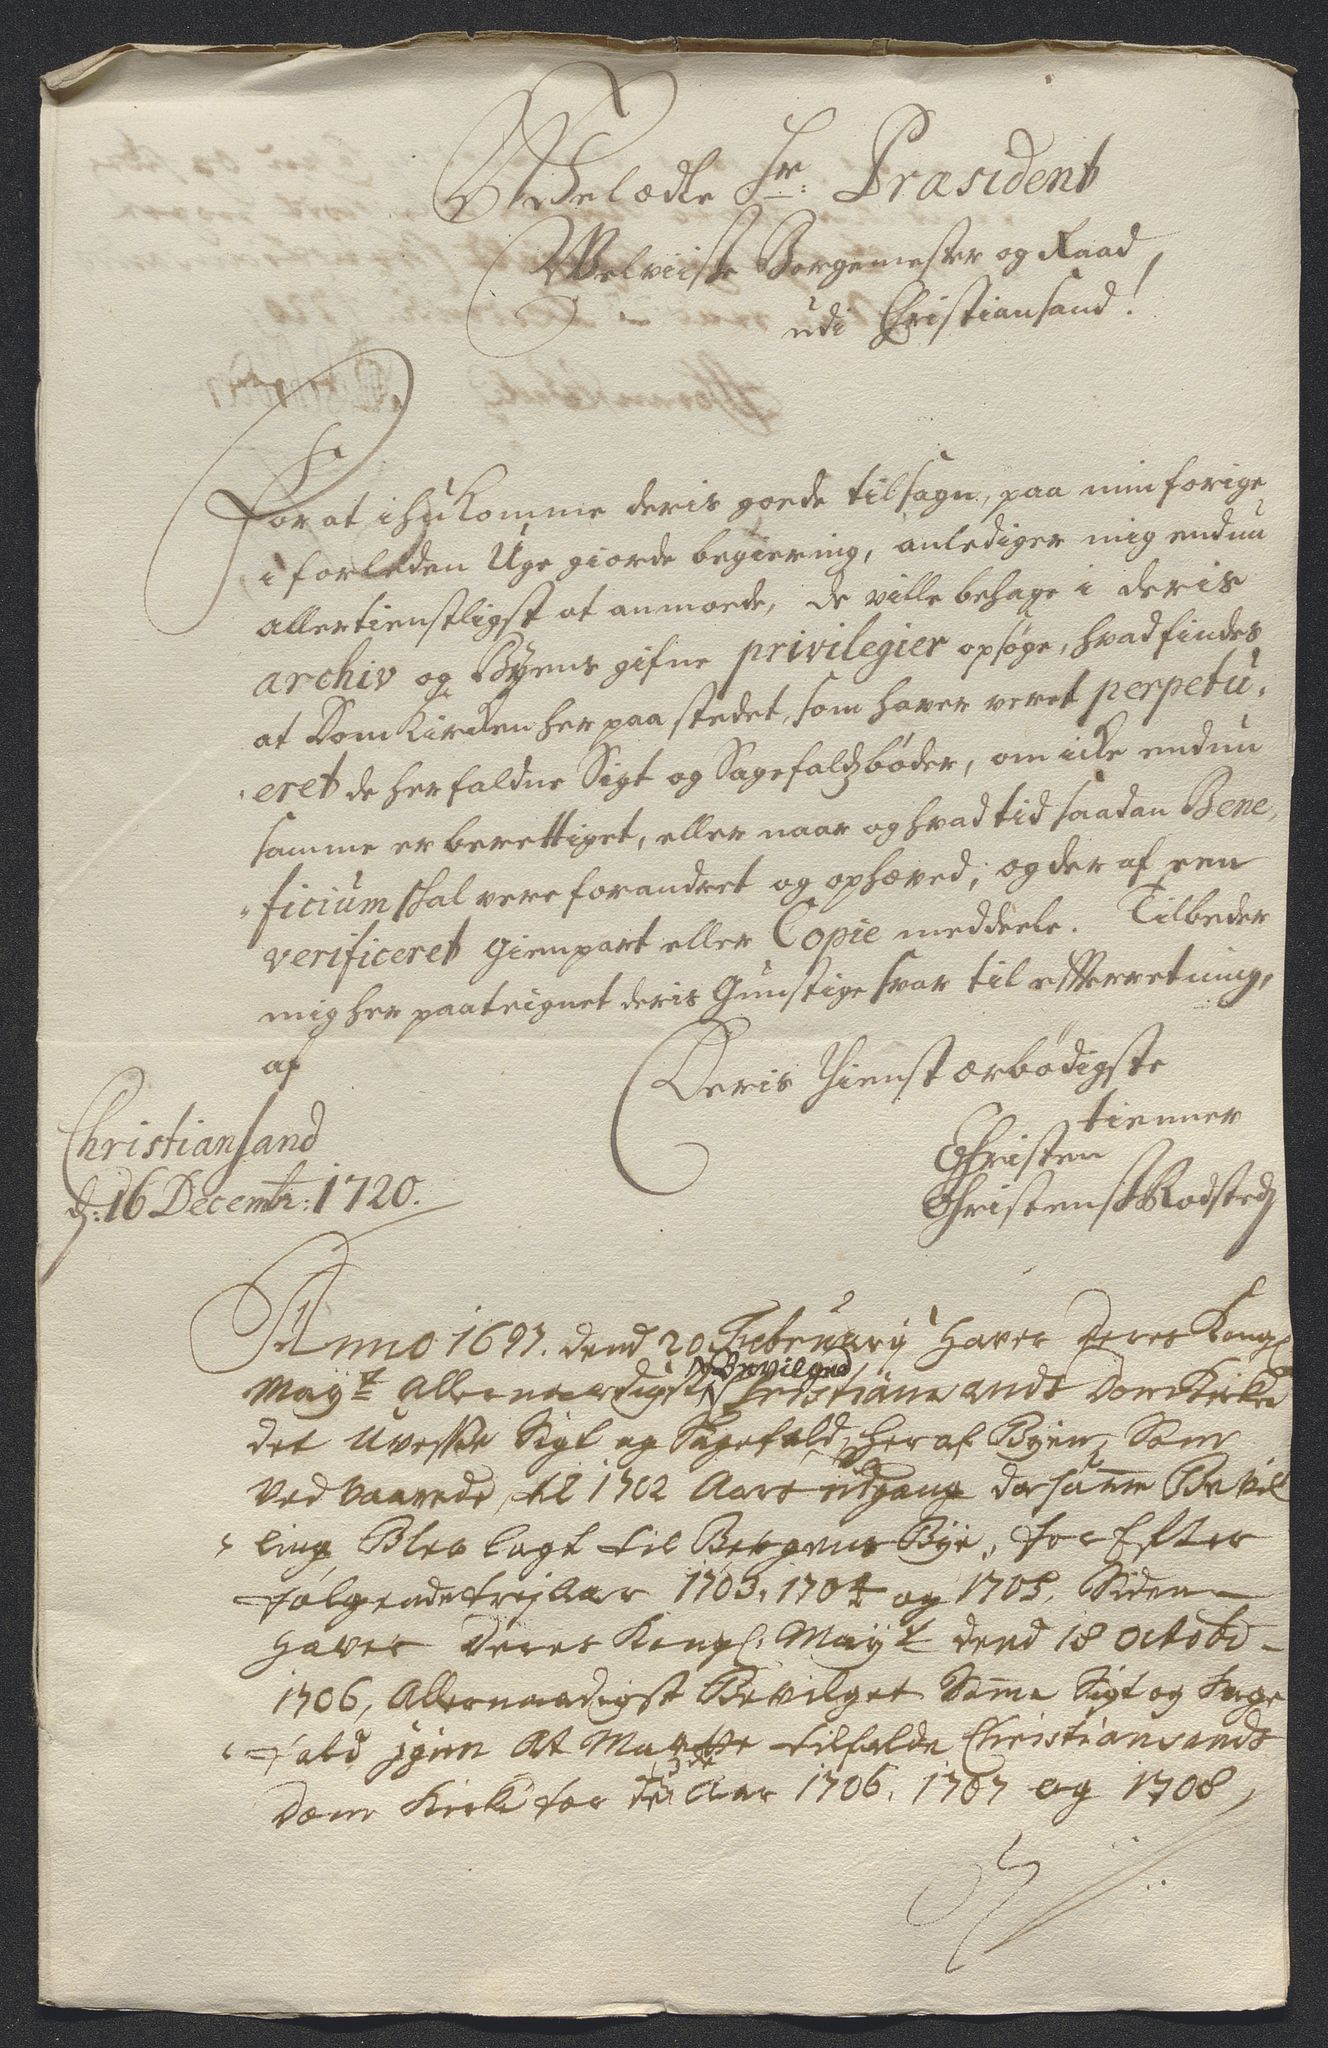 Welædle Hr: Præsident
Welviise Borgemester og Raad,
udi Christiansand!
For at ihukomme deris goede tilsagn, paa min forige
i forleden Uge giorde begiering, anlediger mig endnu
allertienstligst at anmoede, de ville behage i deris
archiv og Byens gifne privilegier opsøge, hvad findes
at Domkirken her paa stedet, som haver veret perpetu,
,eret de her faldne Sigt og Sagefaldsbøder, om icke endnu
samme er berettiget, eller naar og hvad tid saadan Bene,
"ficium skal vere forandret og ophæved; og der af een
verificeret gienpart eller Copie meddeele. Tilbeder
mig her paateignet deris Gunstige svar til efterretning,
af
Deris Tienst ærbødigste
tienner
Christen
Christensen Rodsted
Christiansand
d: 16 Decembr: 1720.
Anno 1697. dend 20 Februarij haver Deres Kongl
Mayt Allernaadigst Bevilged Christiansands Dom Kirke
det Uvesse Sigt og Sagefald, her af Byen, Som
Ved Vaarede til 1702 Aars udgang da samme Bevil
ling Blev lagt til Bergens Bye, for Efter
følgende trej Aar 1703, 1704 og 1705. Siden
haver Deres Kongl: Mayt dend 18 octobr
1706, Allernaadigst Bevilget Samme Sigt og Sage
fald igien At Maatte tilfalde Christiansands
Dom Kirke for de 3de Aar 1706, 1707 og 1708,